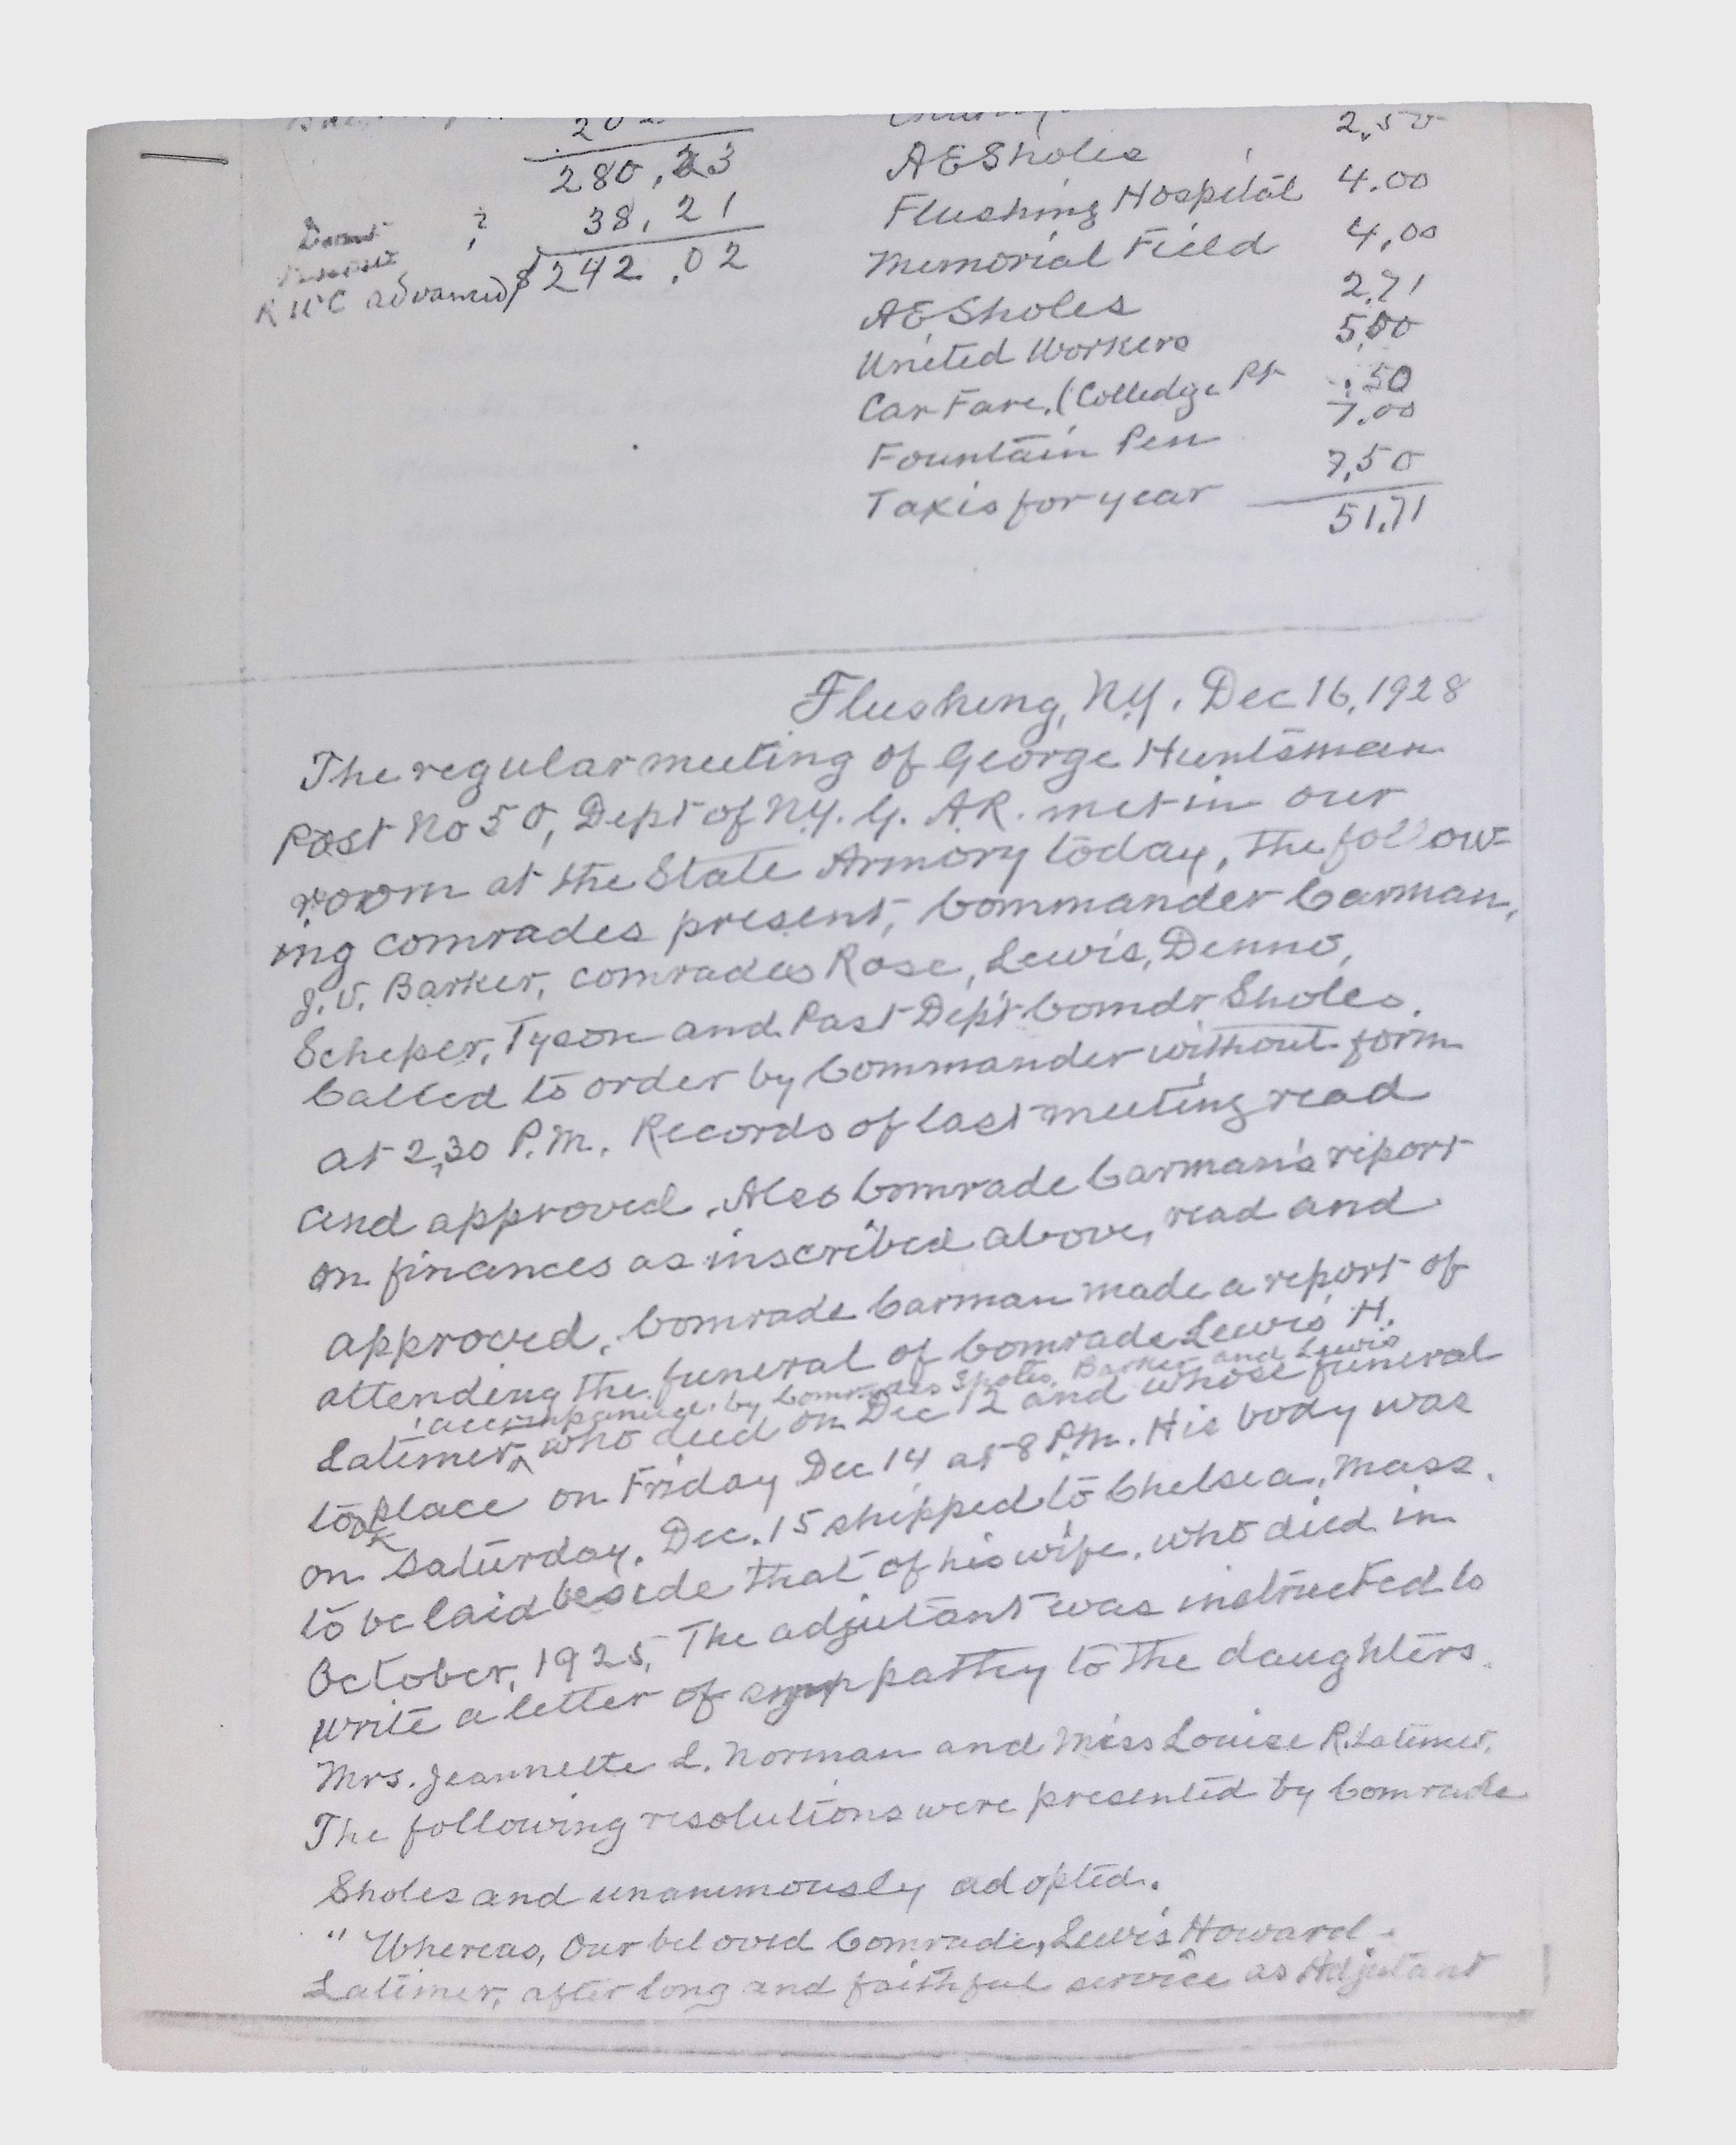 280,23
38,21
W R C advanced $242.02
2,50
A E Sholes
Flushing Hospital 4.00
Memorial Field 4,00
A E Sholes 2,71
United Workers 5,00
Car Fare, (Colledge Pt .50
Fountain Pen 7.00
Taxis for year 7,50
51,71
Flushing, N.Y. Dec 16, 1928
The regular meeting of George Huntsman
Post No 50, Dept of N.Y. G. A.R. met in our
room at the State Armory today, The follow=
ing comrades present, Commander Carman,
J.V. Barker, comrades Rose, Lewis, Denno,
Scheper, Tyson and Past Dep't Comdr Sholes.
Called to order by Commander without form
at 2,30 P.M. Records of last meeting read
and approved. Also Comrade Carman's riport
on finances as inscribed above, read and
approved. Comrade Carman made a report of
attending the funeral of Comrade Lewis H.
accompanied by Comrades Sholes, Barker and Lewis
Latimer, who died on Dec 12 and whose funeral
took place on Friday Dec 14 at 8 P.M. His body was
on Saturday, Dec. 15 shipped to Chelsea, Mass.
to be laid beside that of his wife, who died in
October, 1925, The adjutant was instructed to
write a letter of sympathy to the daughters.
Mrs. Jeannette L. Norman and Miss Louise R. Latimer.
The following resolutions were presented by Comrade
Sholes and unanimously adopted.
" Whereas, Our beloved Comrade, Lewis Howard
Latimer, after long and faithful service as Adjutant